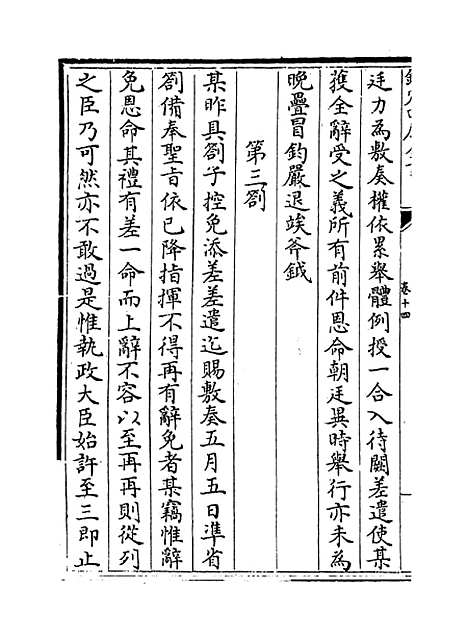 廷力為敷奏權依累舉體例授一合入待闕差遣使某
獲全辭受之義所有前件恩命朝廷異時舉行亦未為
晚疊冒鈞嚴退竢斧鉞
第三劄
某昨具劄子控免添差差遣迄賜敷奏五月五日準省
劄備奉聖旨依已降指揮不得再有辭免者某竊惟辭
免恩命其禮有差一命而上辭不容以至再再則從列
之臣乃可然亦不敢過是惟執政大臣始許至三即止
卷十四